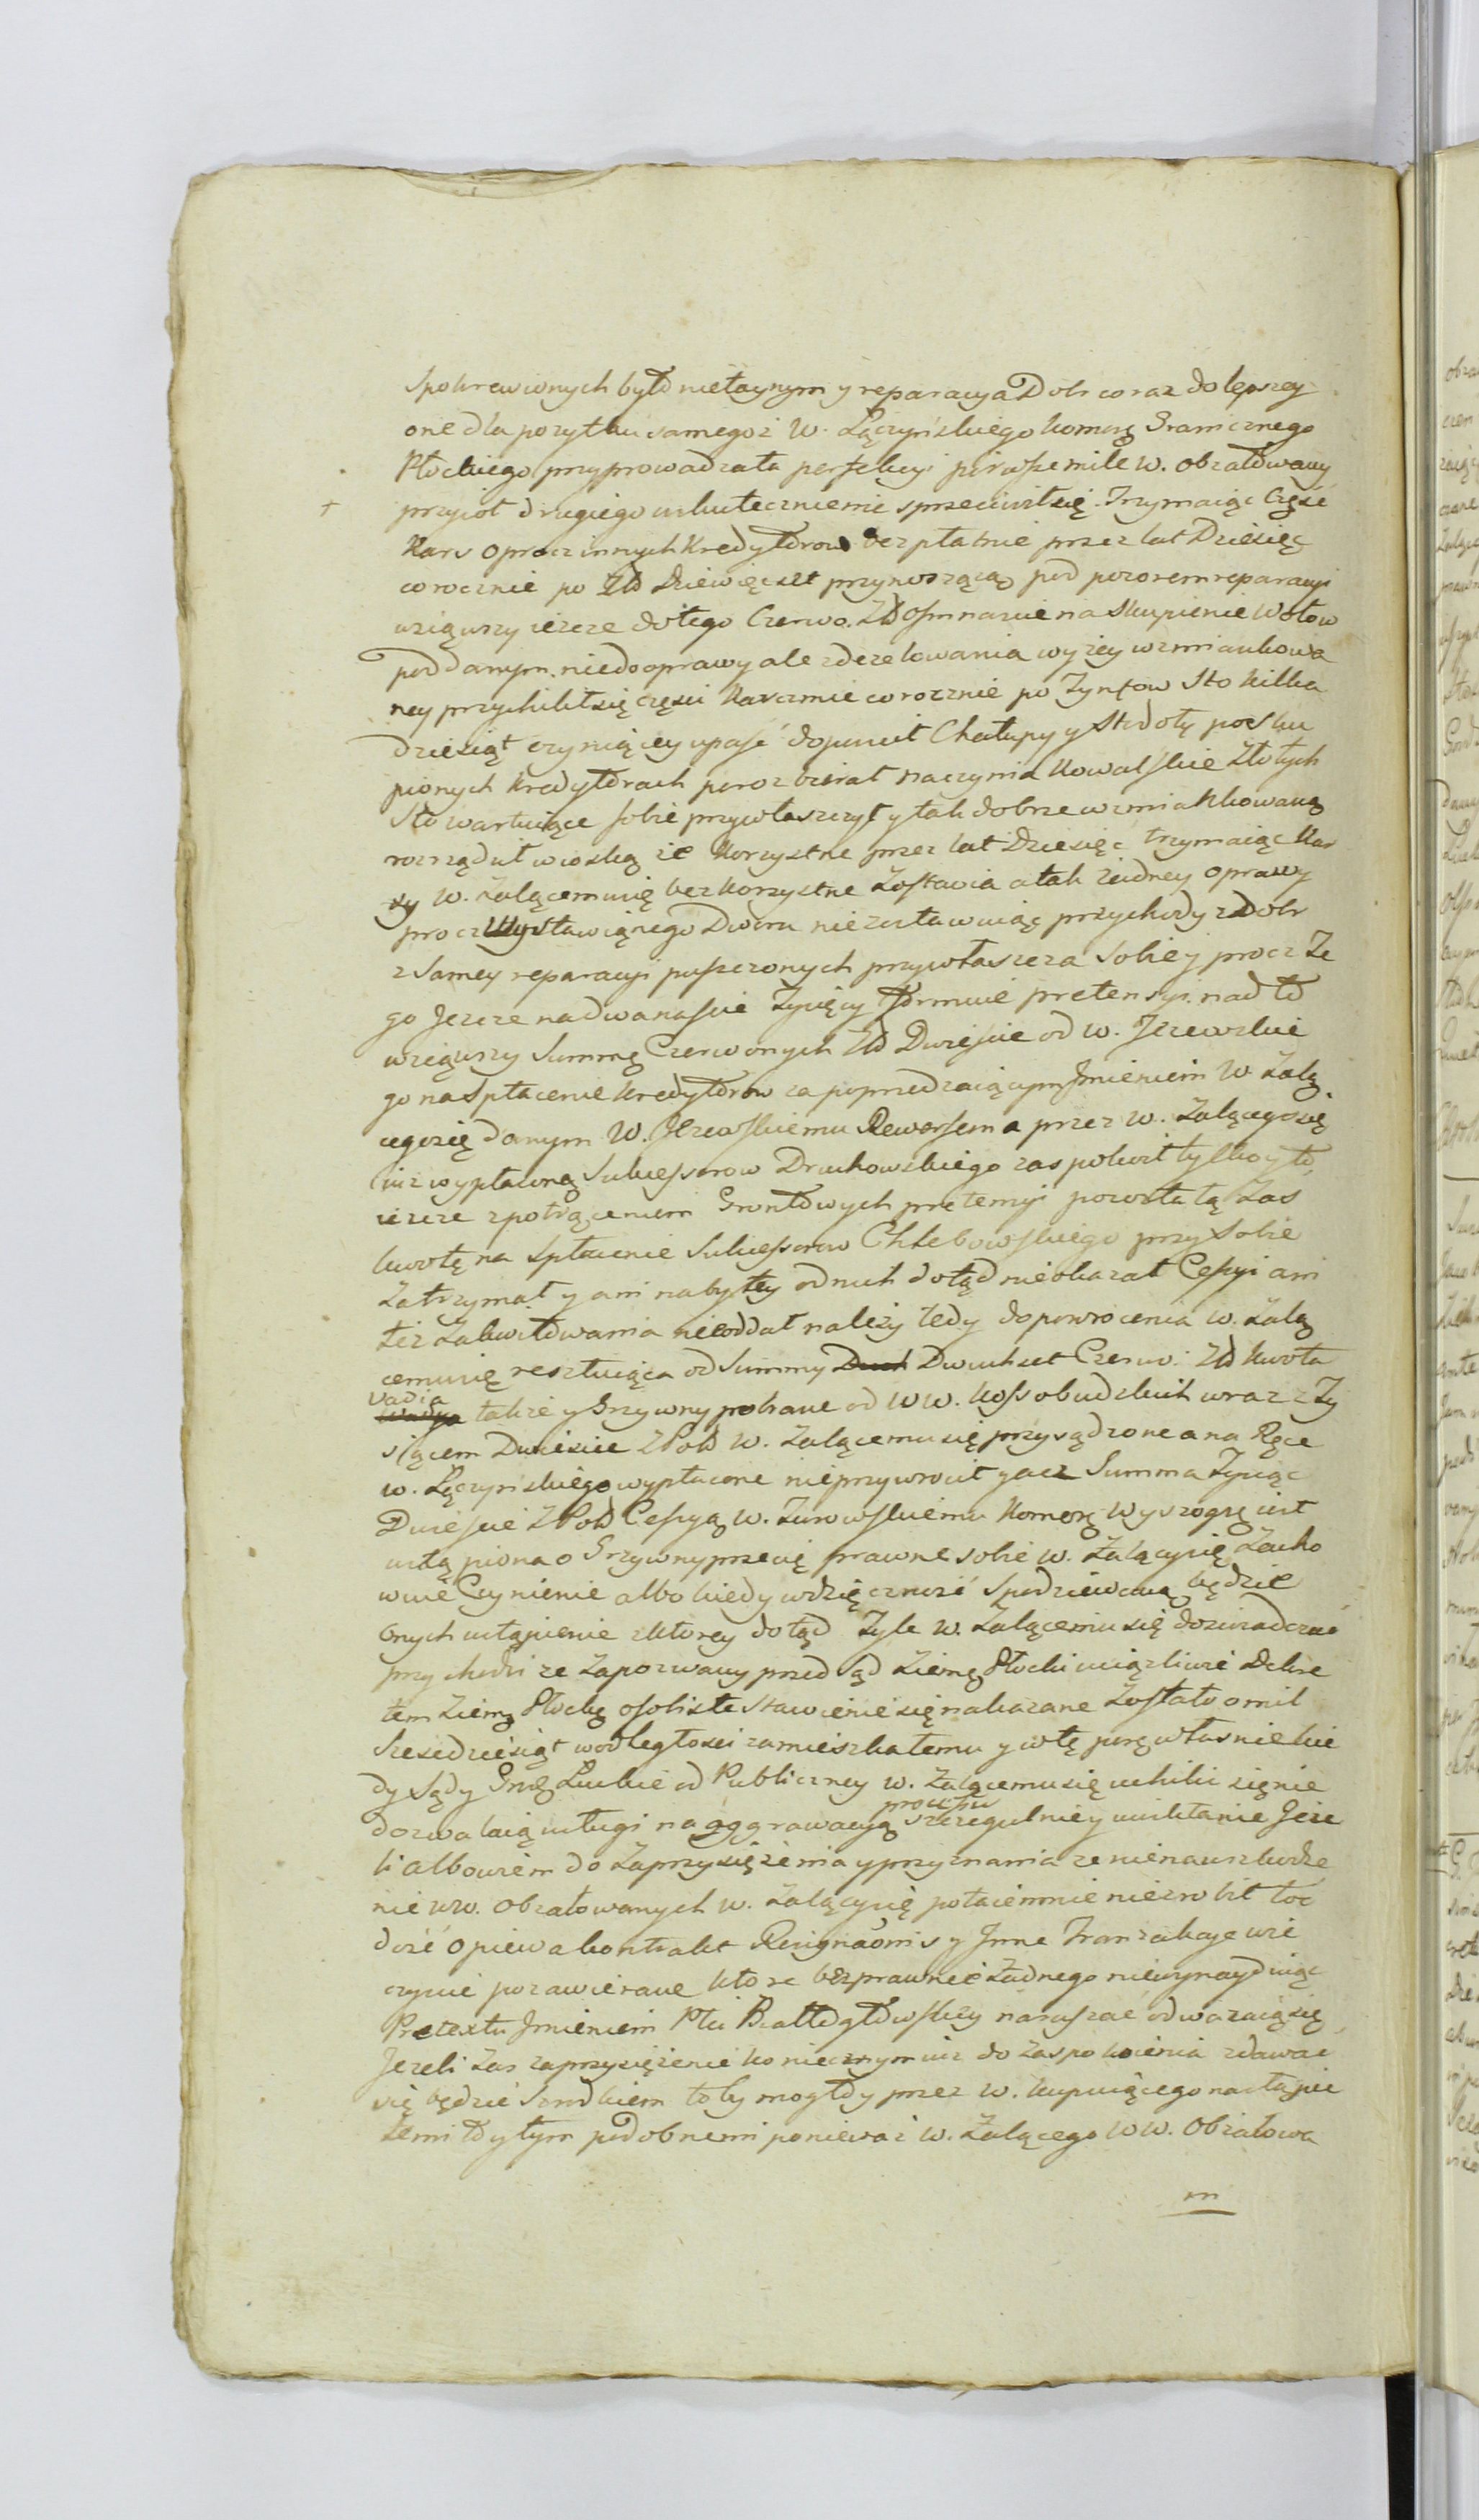 Spokrewionych było nietaynym y reparacya Dobr coraz do lepszey
one dla pozytku samegoż W. Łączyńskiego Komorą Granicznego
Płockiego przyprowadzała perfekcyi pierwsze mile W. obżałowany
przyioł drugiego uskutecznienie sprzeciwił się. Trzymaiąc Część
Kars oprocz innych Kredytorow bezpłatnie przez lat Dziesięć
corocznie po Zło Dziewięćset przynoszącą pod pozorem reparacyi
wziąwszy ieszcze do tego Czerwo. Zło osmnascie na Skupienie Wołow
poddanym, niedooprawy ale zdezelowania wyżey wzmiankowa
ney przychilił się części Karczmie corocznie po Tynfow Sto Kilka
dziesiąt czyniącey upaść dopuscił Chałupy y Stodoły po Sku
pionych Kredytorach porozbierał naczynia Kowalskie Złotych
Sto wartuiące sobie przywłaszczył y tak dobrze wzmiankowaną
rozrządził wioską że Korzystne przez lat Dziesięć trzymaiąc Kar
sy W. Żalącemusię bez korzystne Zostawia a tak żadney oprawy
procz Wystawionego Dworu niezostawuiąc przychody z Dobr
z Samey reparacyi puszczonych przywłaszcza Sobie y procz Te
go Jeszcze na dwanaście Tysięcy formuie pretensyi nad to
wziąwszy Summę Czerwonych Zło Dwieście od W. Jezewskie
go na Spłacenie Kredytorow za poprzedzaiącym Jmieniem W. Żalą
cegosię danym W. Jezewskiemu Rewersem a przez W. Żalącegosię
iuż wypłaconą Sukcessorow Druchowskiego zaspokoił tylko y to
ieszcze z potrąceniem Grontowych pretensyi pozostałą Zaś
kwotę na Spłacenie Sukcessorow Chlebowskiego przy Sobie
Zatrzymał y ani nabytey od nich dotąd nieokazał Cessyi ani
też Zakwitowania nieoddał należy tedy do powrocenia W. Żalą
cemusię resztuiąca od Summy Dwuchset Czerwo: Zło kwota
vadia także y Grzywny pobrane od WW. Kossobudzkich wraz z Ty
siącem Dwieście ZPol W. Żalącemu się przysądzone a na Ręce
W. Łączynskiego wypłacone nieprzywrocił y acz Summa Tysiąc
Dwieście ZPol Cessyą W. Żurowskiemu Komorą Wyszogrą iest
ustąpiona o Grzywny przecię prawne sobie W. Żalącysię Zacho
wuie Czynienie albo kiedy wdzięczność Spodziewana będzie
Onych ustąpienie z Ktorey dotąd Tyle W. Żalącemu się doswiadczać
przychodzi że Zapozwany przed Sąd Ziemą Płocki uciążliwie Dekre
tem Ziemą Płocką osobiste Stawienie się nakazane Zostało o mil
Szescdziesiąt w odległosci zamieszkałemu y w tę porę własnie kie
dy Sądy Grod Łuckie od Publiczney W. Żalącemusię uchilić się nie
dozwalaią usługi na aggrawacyą processu szczegulniey uwikłanie Jeże
li albowiem do Zaprzysiężenia y przyznania że nienauszkodze
nie WW. Obżałowanych W. Żalącysię potaiemnie niezrobił toc
dość opiewa kontrakt Resignaonis y Jnne Tranzakcye wie
czyscie pozawierane które bezprawnie Żadnego niewynayduiąc
Pretextu Jmieniem Płci Białłogłowskiey naruszać odważaią się
Jeżeli Zas zaprzysiężenie koniecznym iuż do Zaspokoienia zdawać
się będzie Srodkiem to by mogłoy przez W. kupuiącego nastąpić
temi tytym podobnemi ponieważ W. Żalącego WW. Obżałowa
m